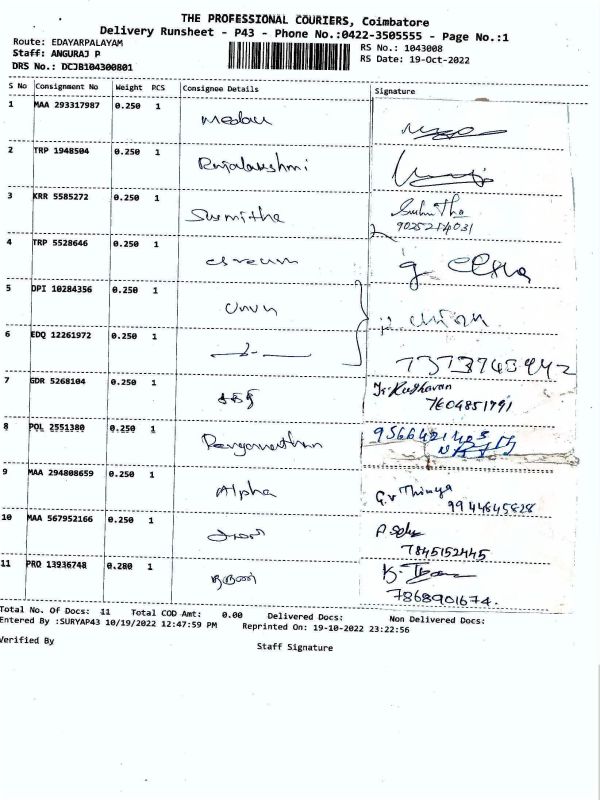 THE PROFESSIONAL COURIERS, Coimbatore
Delivery Runsheet - P43 - Phone No.:0422-3505555 - Page No.:1
Route: EDAYARPALAYAM
RS No.: 1043008
Staff: ANGURAJ P
RS Date: 19-Oct-2022
DRS No.: DCJB104300801
S No Consignment No Weight PCS Consignee Details Signature
1 MAA 293317987 0.250 1
2 TRP 1948504 0.250 1 Rajalakshmi
3 KRR 5585272 0.250 1 Susmitha
9025214031
4 TRP 5528646 0.250 1
5 DPI 10284356 0.250 1
6 EDQ 12261972 0.250 1
7373748942
7 GDR 5268104 0.250 1
7604851791
8 POL 2551380 0.250 1 Ranganathan
9 MAA 294808659 0.250 1 Alpha G.V Thivya
9944645828
10 MAA 567952166 0.250 1
7845152445
11 PRO 13936748 0.280 1
7868901674.
Total No. Of Docs: 11 Total COD Amt: 0.00 Delivered Docs: Non Delivered Docs:
Entered By :SURYAP43 10/19/2022 12:47:59 PM Reprinted On: 19-10-2022 23:22:56
Verified By
Staff Signature